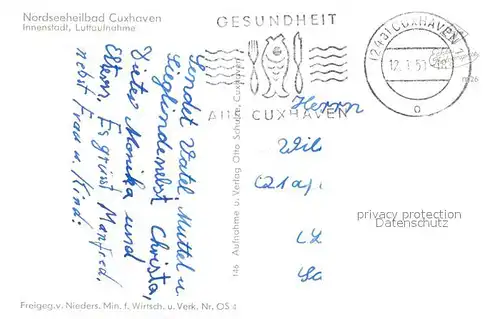 Nordseeheilbad Cuxhaven
Innenstadt, Luftaufnahme
GESUNDHEIT
AUS CUXHAVEN
(24a) CUXHAVEN 1
Sendet Vatel, Muttel u.
Sieglinde nebst Christa,
Dieter, Monika und
Eltern. Es grüsst Manfred,
nebst Frau u. Kind.
146 Aufnahme u. Verlag Otto Schulze, Cuxhaven
Herrn
Wil
(21a)
privacy protection
Datenschutz
Freigeg. v. Nieders. Min. f. Wirtsch. u. Verk. Nr. OS 4